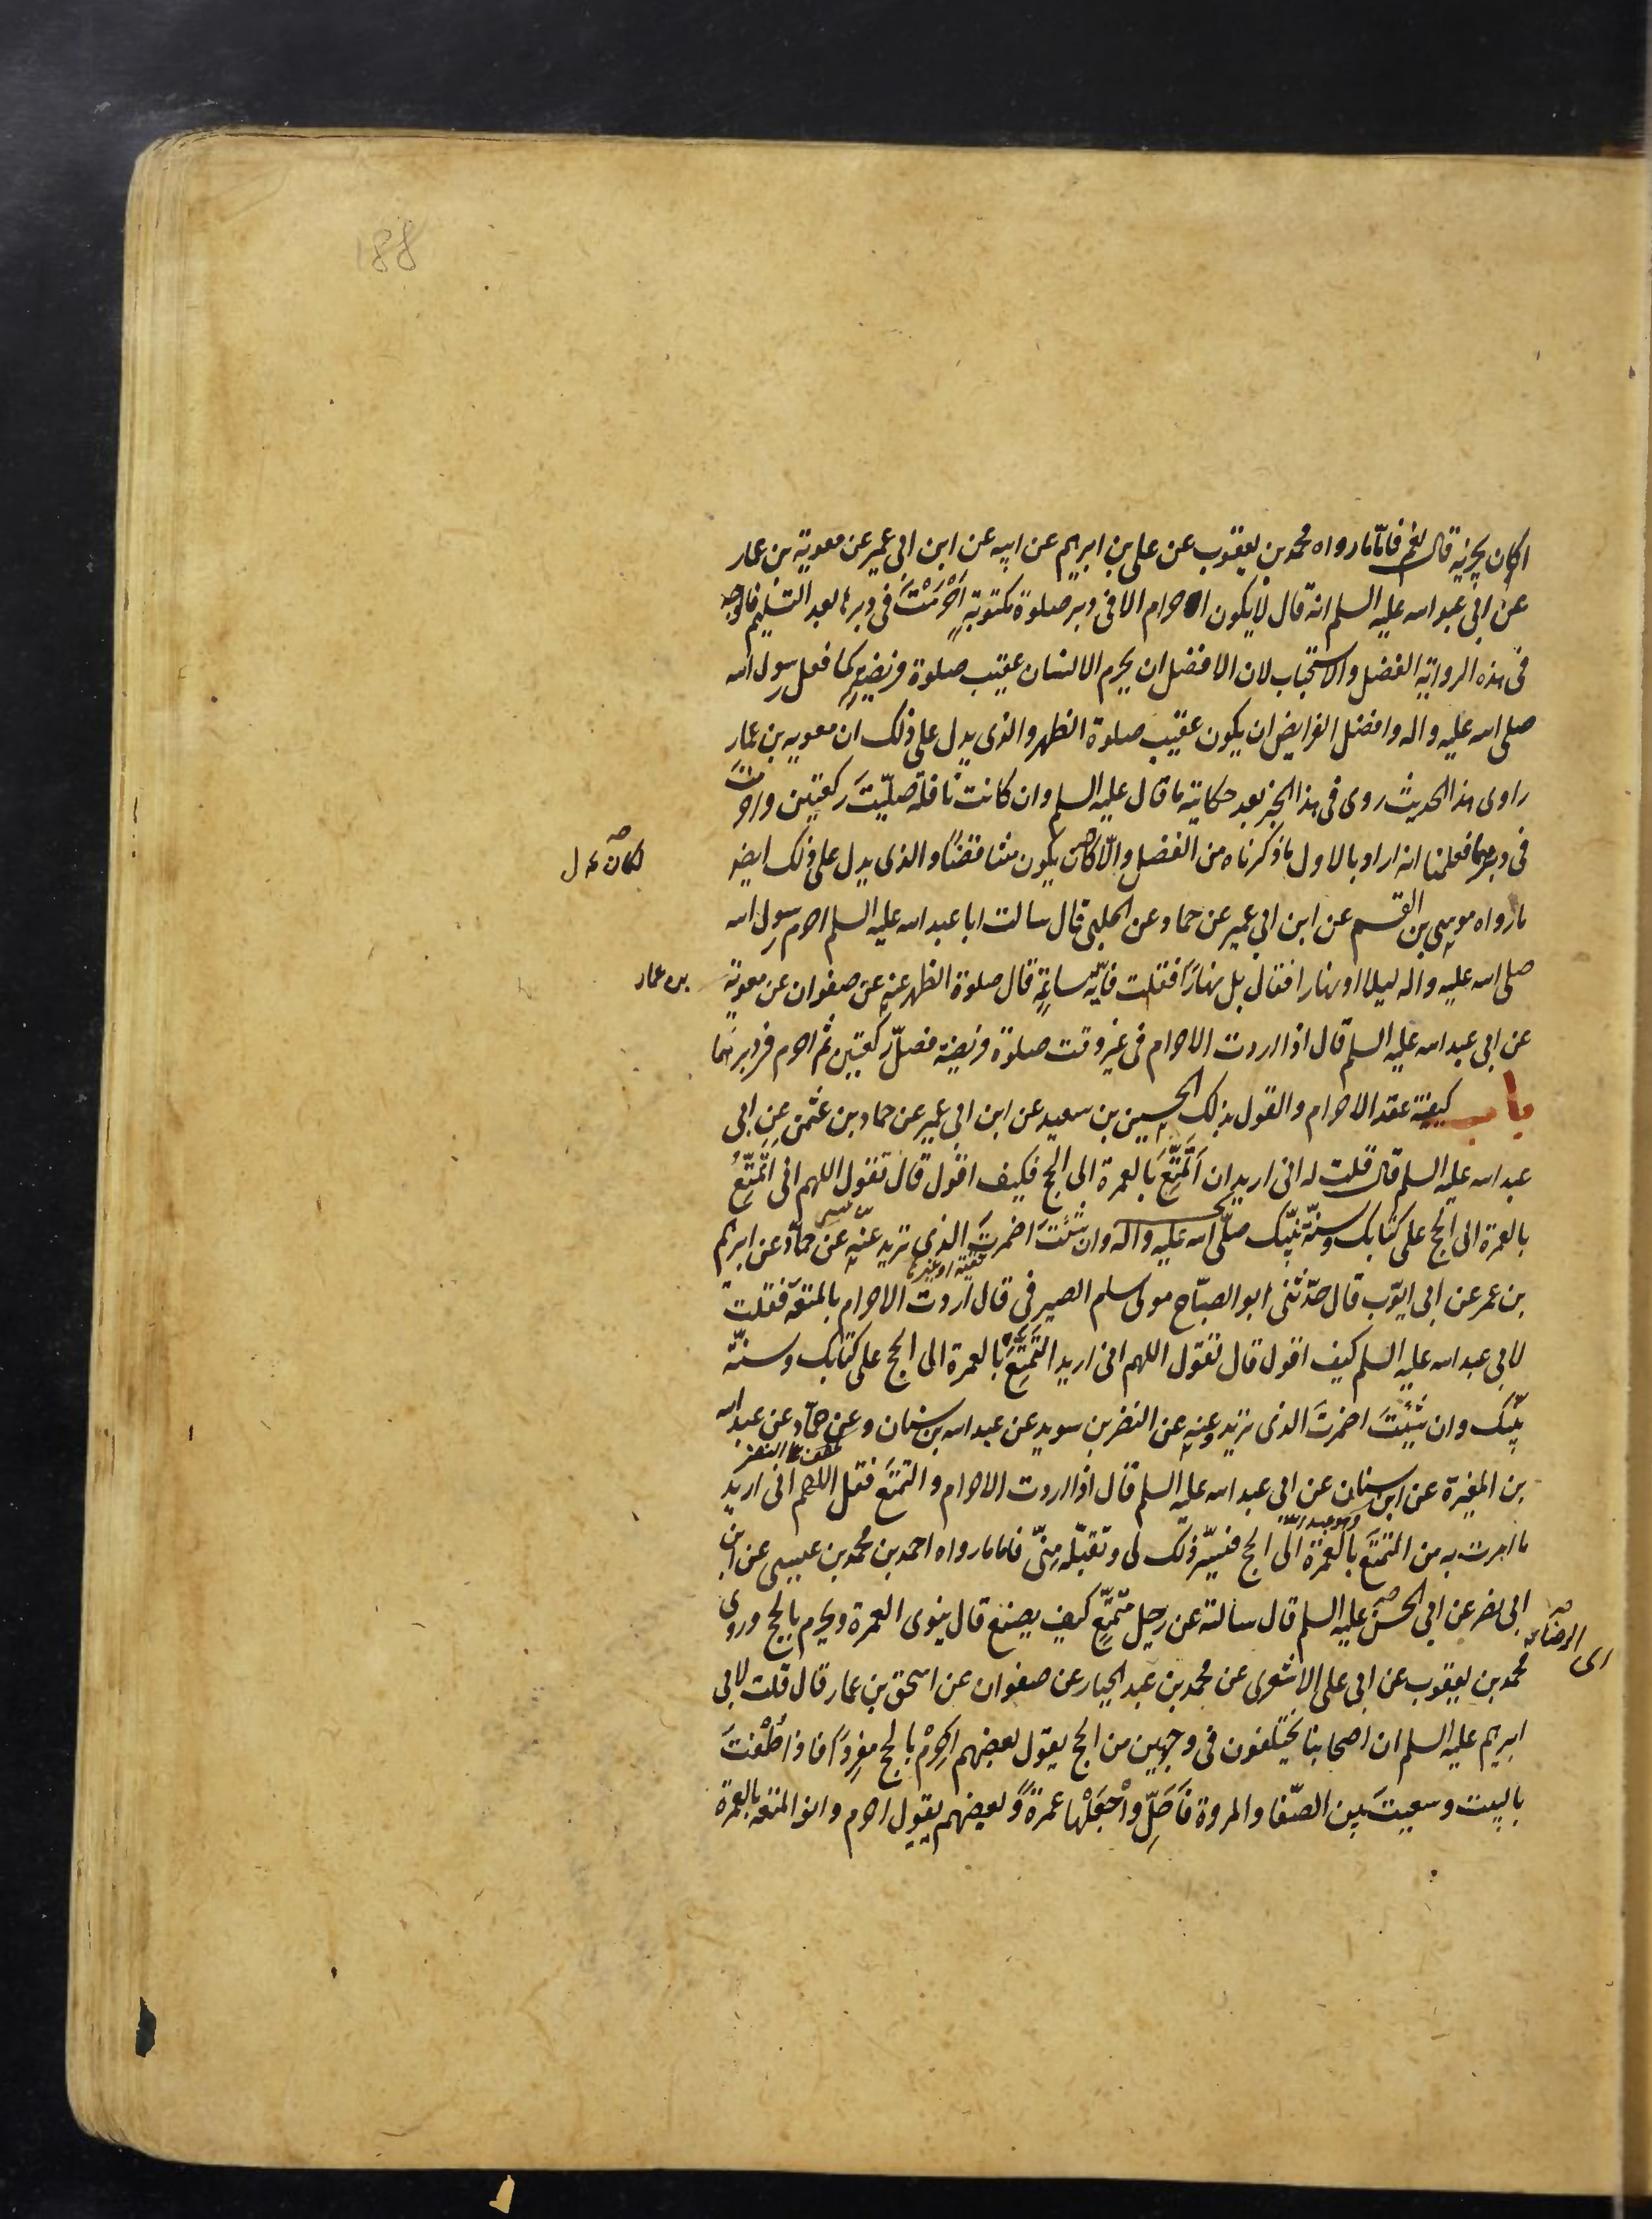 188
اكان يجزيه قال نعم فامّا ما رواه محمد بن يعقوب عن على بن ابرهيم عن ابيه عن ابن ابى عمير عن معوية بن عمار
عن ابى عبد الله عليه السلم انه قال لا يكون احرام الا فى دبر صلوة مكتوبةٍ اَحْرَمْتَ فى دبرها بعد التسليم فالوجه
فى هذه الرواية الفضل والاستحباب لان الافضل ان يحرم الانسان عقيب صلوة فريضةٍ كما فعل رسول الله
صلى الله عليه واله وافضل الفرايض ان يكون عقيب صلوة الظهر والذى يدل على ذلك ان معويه بن عمار
راوى هذا الحديث روى فى هذا الخبر بعد حكاية ما قال عليه السلم وان كانت نافلة صلّيتَ ركعتين واحرمتَ
فى دبرهما فعلمنا انه اراد بالاول ما ذكرناه من الفضل والّا كان يكون متناقضًا والذى يدل على ذلك ايضو
لكان
ما رواه موسى بن القسم عن ابن ابى عمير عن حماد عن الحلبى قال سالت ابا عبد الله عليه السلم احرم رسول الله
صلى الله عليه واله ليلا او نهارا فقال بل نهارًا فقلت فايّه ساعةٍ قال صلوة الظهر عنه عن صفوان عن معوية
بن عمار
عن ابى عبد الله عليه السلم قال اذا اردت الاحرام فى غير وقت صلوة فريضة فصلّ ركعتين ثم احرم فى دبرهما
باب كيفية عقد الاحرام والقول بذلك الحسين بن سعيد عن ابن ابى عمير عن حماد بن عثمن عن ابى
عبد الله عليه السلم قال قلت له انى اريد ان اَتَمَتَّعَ بالعمرة الى الحج فكيف اقول قال تقول اللهم انى اتمتّعُ
بالعمرة الى الحج على كتابك وسنّة نبيّك صلّى الله عليه واله وان شئتَ اضمرتَ الذى تريد عنه عن حمّاد عن ابرهيم
تقية او غيرها
بن عمر عن ابى ايّوب قال حدّثنى ابو الصبّاح مولى بسام الصيرفى قال اردت الاحرام بالمتعة فقلت
لابى عبد الله عليه السلم كيف اقول قال تقول اللهم انى اريد التَمَتُّعَ بالعمرة الى الحج على كتابك وسنّة
نبيّك وان شئتَ اضمرتَ الذى تريد وعنه عن النضر بن سويد عن عبد الله بن سنان وعن حمّاد عن عبد الله
بن المغيرة عن ابن سنان عن ابى عبد الله عليه السلم قال اذا اردت الاحرام والتمتع فقل اللهم انى اريد
وهو عبد الله
ما امرت به من التمتع بالعمرة الى الحج فيسّر ذلك لى وتقبّله مِنّى فاما ما رواه احمد بن محمد بن عيسى عن ابن
ابى نصر عن ابى الحسن عليه السلم قال سالته عن رجل متمتّعٍ كيف يصنع قال ينوى العمرة ويحرم بالحج وروى
اى الرضا
محمد بن يعقوب عن ابى على الاشعرى عن محمد بن عبد الجبار عن صفوان عن اسحق بن عمار قال قلت لابى
ابرهيم عليه السلم ان اصحابنا يختلفون فى وجهين من الحج يقول بعضهم اَحْرِمْ بالحج مفردًا فاذا طُفْتَ
بالبيت وسعيتَ بين الصّفا والمروة فَاَحِلّ واْجْعَلْها عمرةً وبعضهم يقول احرم وانو المتعة بالعمرة